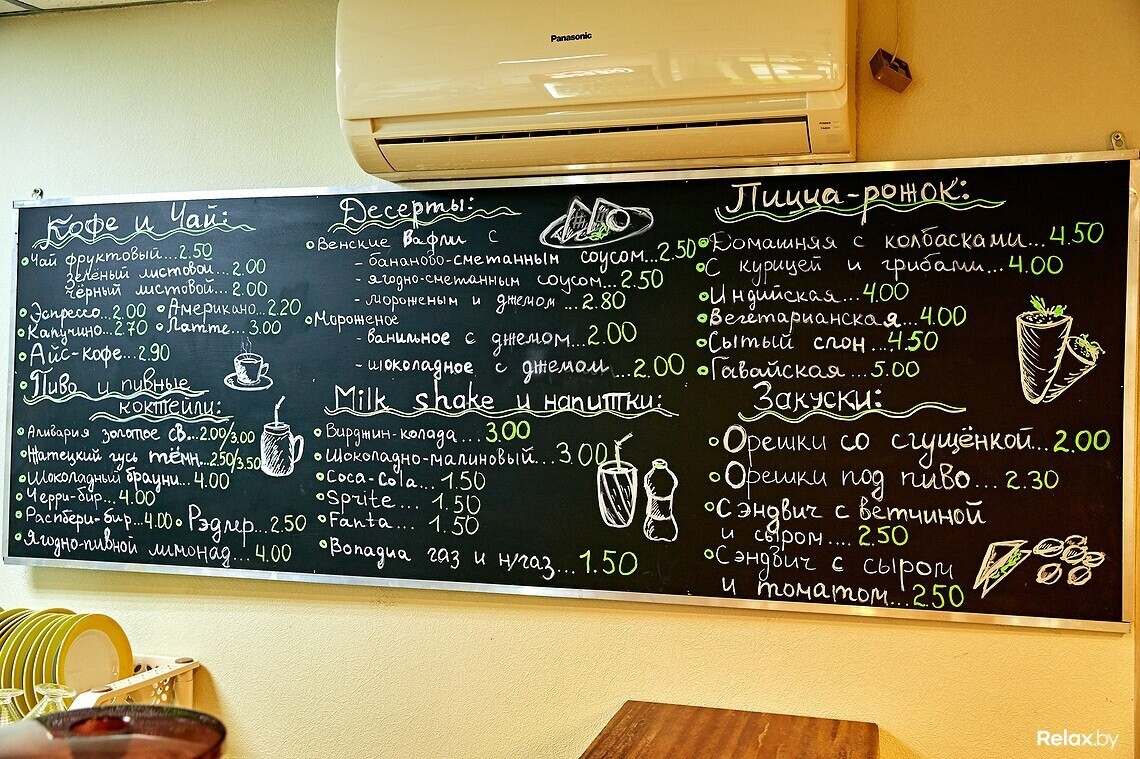 Panasonic
Кофе и Чай:
Чай фруктовый...2.50
зелёный листовой...2.00
чёрный листовой...2.00
Эспрессо...2.00 Американо...2.20
Капучино...2.70 Латте...3.00
Айс-кофе...2.90
Пиво и пивные
коктейли:
Аливария золотое св...2.00/3.00
Жатецкий гусь тёмн...2.50/3.50
Шоколадный брауни...4.00
Черри-бир...4.00
Распбери-бир...4.00 Рэдлер...2.50
Ягодно-пивной лимонад...4.00
Десерты:
Венские вафли с
- бананово-сметанным соусом...2.50
- ягодно-сметанным соусом...2.50
- мороженым и джемом...2.80
Мороженое
- ванильное с джемом...2.00
- шоколадное с джемом...2.00
Milk shake и напитки:
Вирджин-колада...3.00
Шоколадно-малиновый...3.00
Coca-Cola...1.50
Sprite...1.50
Fanta...1.50
Вопадиа газ и н/газ...1.50
Пицца-рожок:
Домашняя с колбасками...4.50
С курицей и грибами...4.00
Индийская...4.00
Вегетарианская...4.00
Сытый слон...4.50
Гавайская...5.00
Закуски:
Орешки со сгущёнкой...2.00
Орешки под пиво...2.30
Сэндвич с ветчиной
и сыром....2.50
Сэндвич с сыром
и томатом...2.50
Relax.by